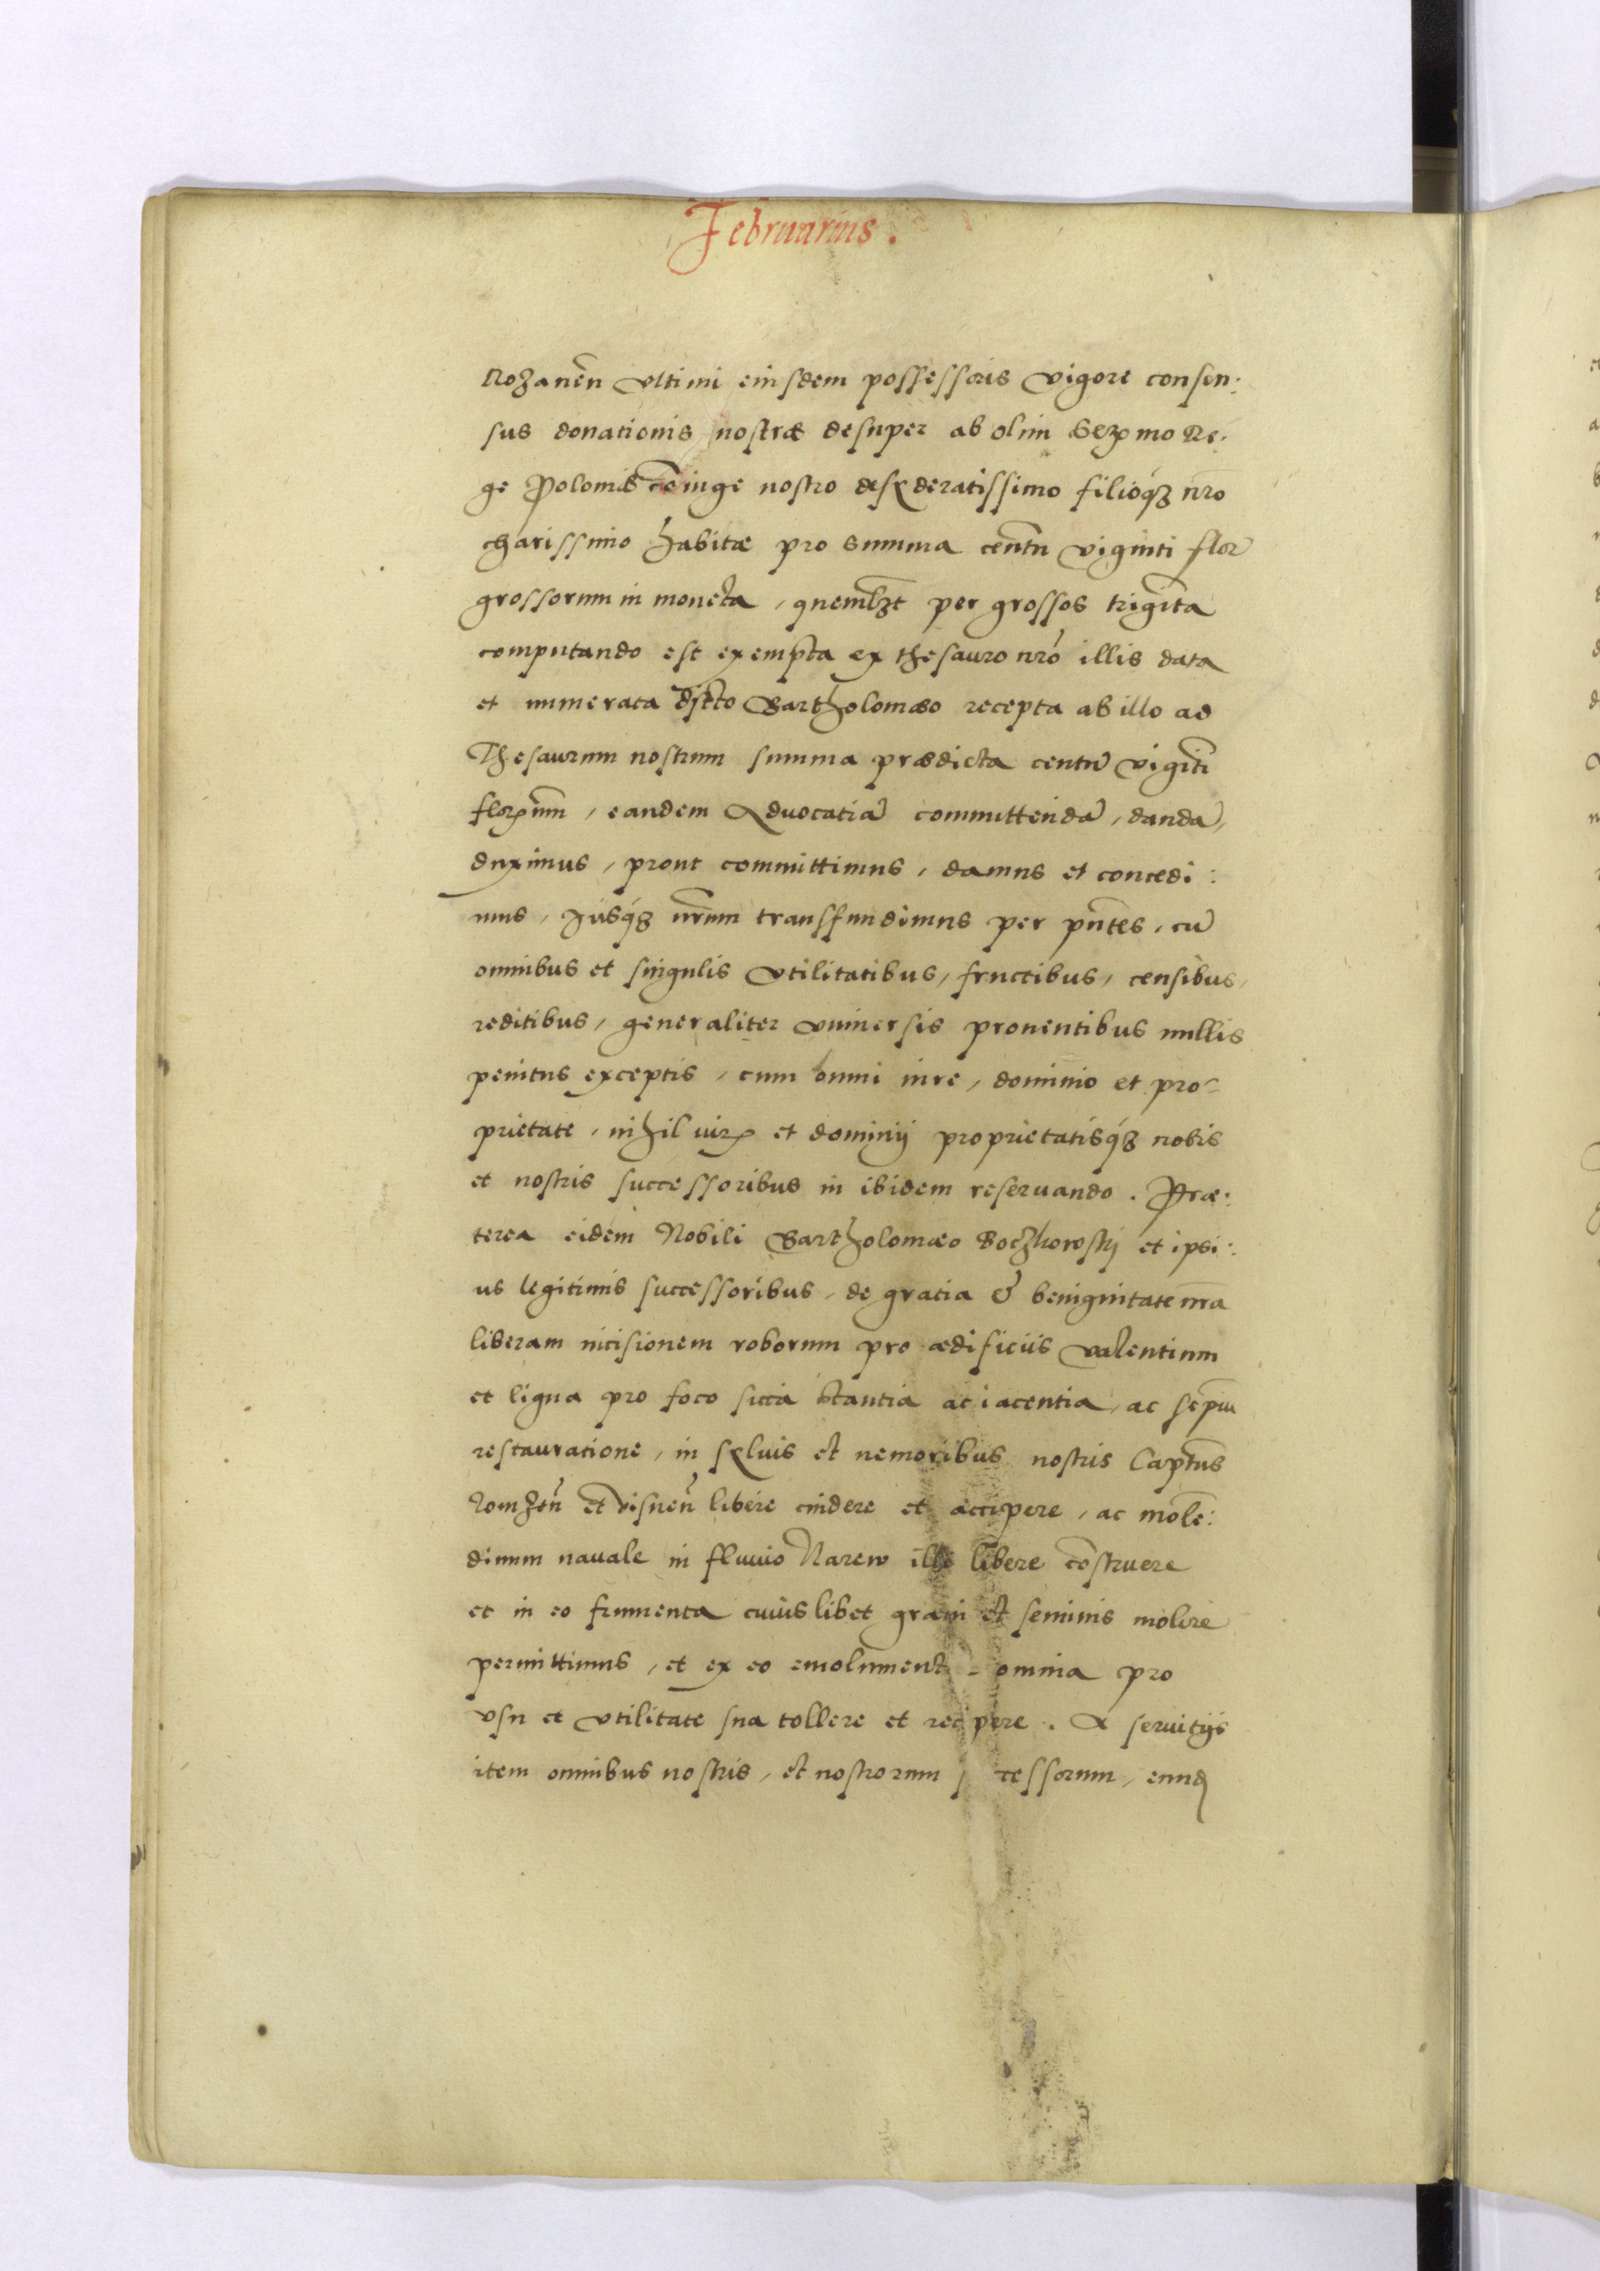 Februarius.
Rozanen̄ vltimi eiusdem possessoris vigore consen:
sus donationis nostræ desuper ab olim Serꝫmo Re:
ge Poloniæ cōiuge nostro desyderatissimo filioq́ꝫ nr̄o
charissimo habitæ pro summa centū viginti flor̄
grossorum in moneta, quemlꝫt per grossos trigīta
computando est exempta ex thesauro nr̄o illis data
et numerata dicto Bartholomæo recepta ab illo ad
Thesaurum nostrum summa prædicta centū vigīti
flor̄enum, eandem Aduocatiā committendā, dandā,
duximus, prout committimus, damus et concedi:
mus, Iusq́ꝫ nr̄um transfundimus per pn̄tes, cū
omnibus et singulis vtilitatibus, fructibus, censibus,
reditibus, generaliter vniuersis prouentibus nullis
penitus exceptis, cum omni iure, dominio et pro-
prietate, nihil iuris et dominij proprietatisq́ꝫ nobis
et nostris successoribus in ibidem reseruando. Præ:
terea eidem Nobili Bartholomæo Boczkowskj et ipsi:
us legitimis successoribus, de gratia & benignitate nr̄a
liberam incisionem roborum pro ædificiis valentium
et ligna pro foco sicca stantia ac iacentia, ac sepiū
restauratione, in syluis et nemoribus nostris Captūs
Lomzen̄ et Visnen̄ libere cindere et accipere, ac molē:
dinum nauale in fluuio Narew illi libere cōstruere
et in eo frumenta cuiuslibet grani et seminis molere
permittimus, et ex eo emolumenta omnia pro
vsu et vtilitate sua tollere et recipere. A seruitijs
item omnibus nostris, et nostrorum cessorum, eund